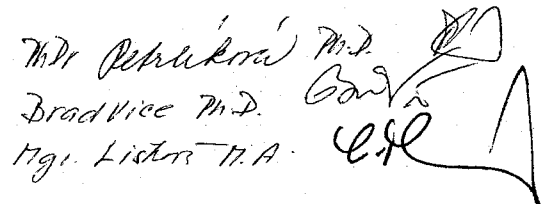 PhDr Petrlíková Ph.D.
Brad Vice Ph.D.
Mgr. Lisková M.A.